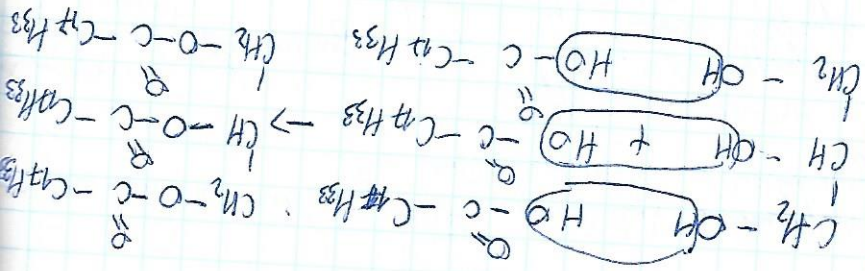 O O
CH₂ - OH HO - C - C₁₇H₃₃ CH₂ - O - C - C₁₇H₃₃
O O
CH - OH + HO - C - C₁₇H₃₃ -> CH - O - C - C₁₇H₃₃
O O
CH₂ - OH HO - C - C₁₇H₃₃ CH₂ - O - C - C₁₇H₃₃